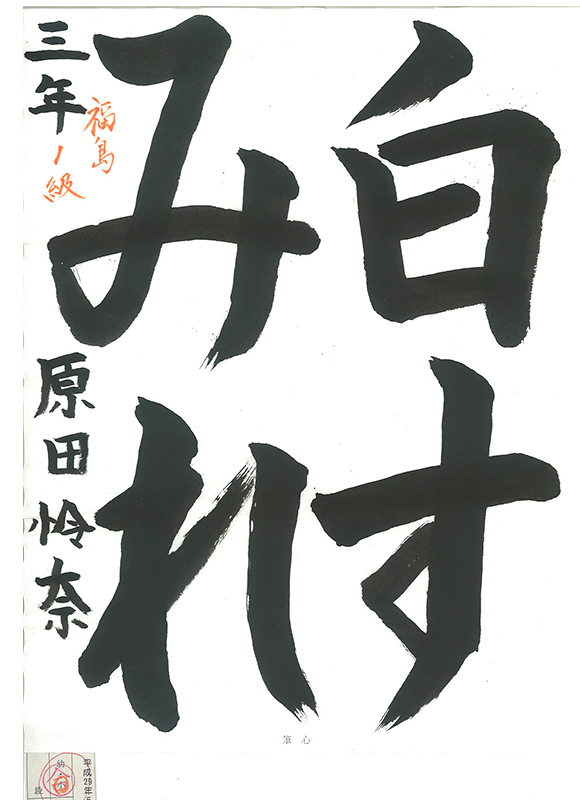 白す
みれ
三年 原田怜奈
福島
1級
心筆
平成29年
幼
段